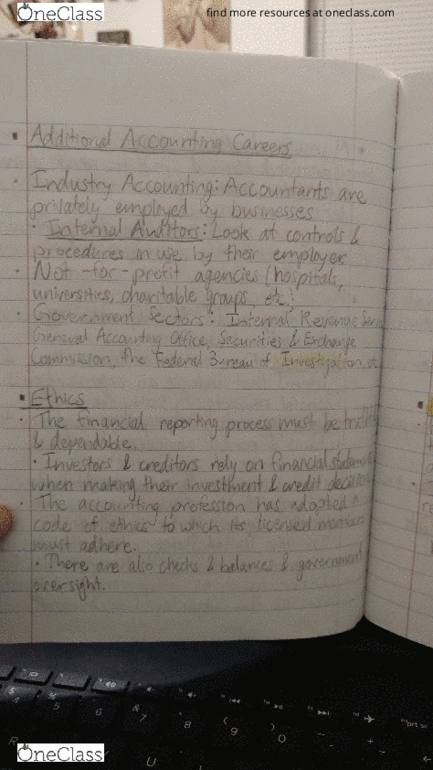 OneClass
find more resources at oneclass.com
▪ Additional Accounting Careers
• Industry Accounting: Accountants are
privately employed by businesses
• Internal Auditors: Look at controls &
procedures in use by their employer
• Not-for-profit agencies (hospitals,
universities, charitable groups, etc)
• Government Sectors: Internal Revenue
General Accounting Office, Securities & Exchange
Commission, the Federal Bureau of Investigation,
▪ Ethics
• The financial reporting process must be
& dependable.
• Investors & creditors rely on financial
when making their investment & credit
• The accounting profession has adopted a
code of ethics to which its licensed
must adhere.
• There are also checks & balances & government
oversight.
4
5
6
& 7
* 8
( 9
) 0
U
OneClass